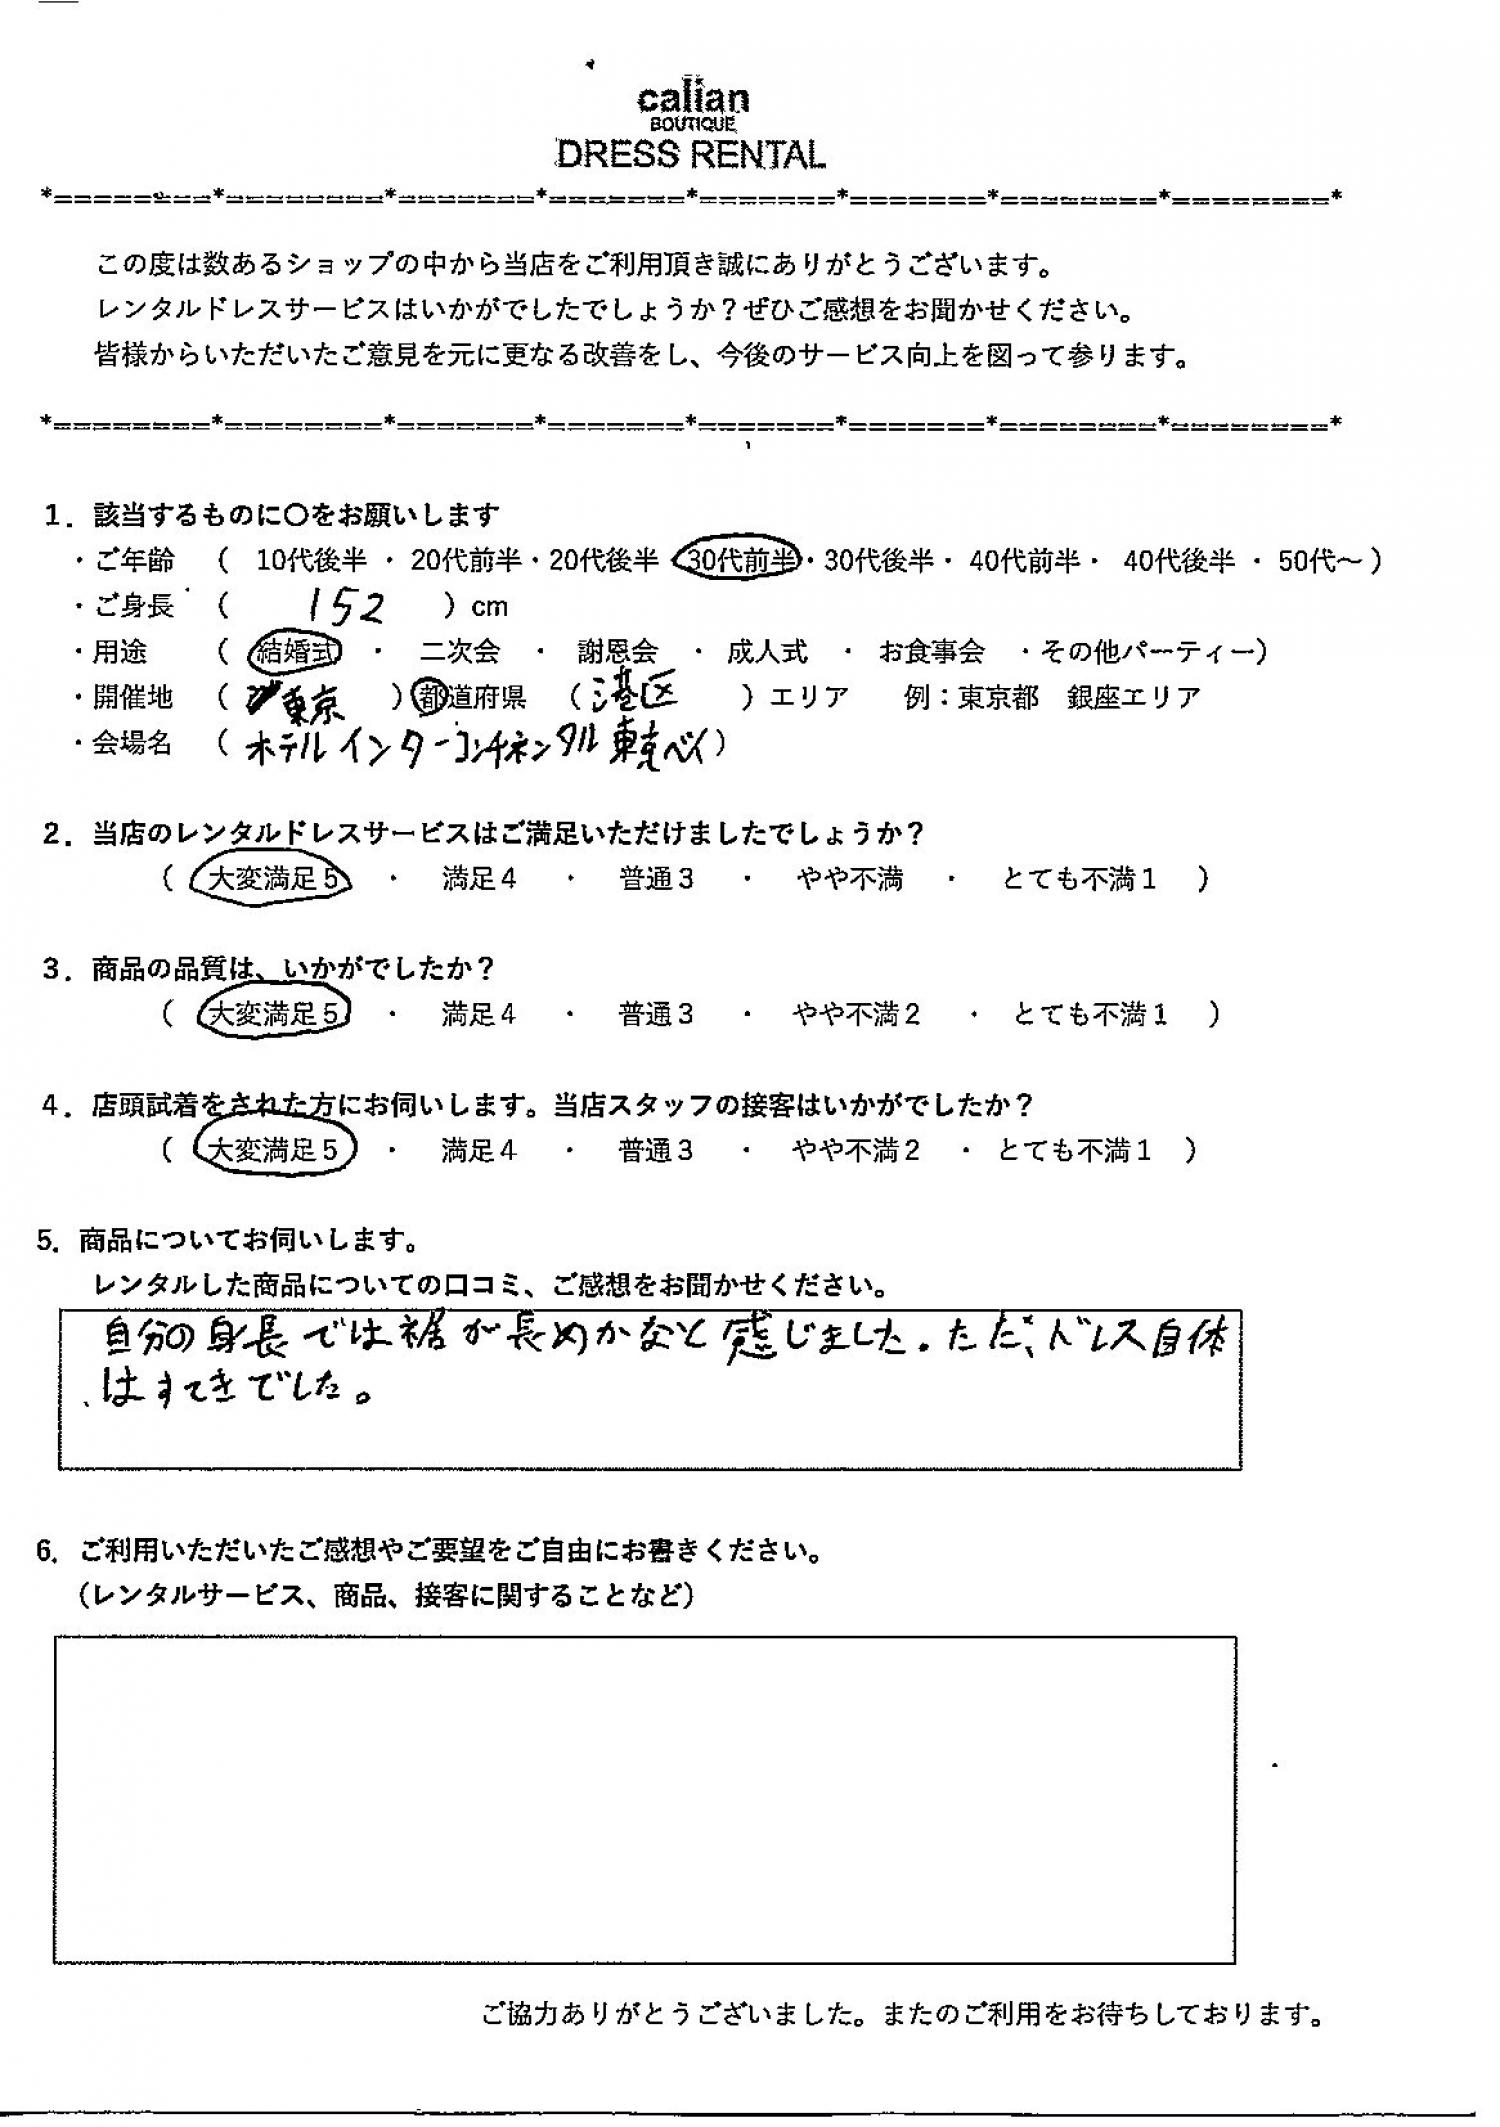 calian
BOUTIQUE
DRESS RENTAL
*========*========*=======*=======*=======*=======*========*========*
この度は数あるショップの中から当店をご利用頂き誠にありがとうございます。
レンタルドレスサービスはいかがでしたでしょうか？ぜひご感想をお聞かせください。
皆様からいただいたご意見を元に更なる改善をし、今後のサービス向上を図って参ります。
*========*========*=======*=======*=======*=======*========*========*
1．該当するものに〇をお願いします
・ご年齢 （ 10代後半 ・ 20代前半・20代後半 ・30代前半・30代後半・ 40代前半・ 40代後半 ・ 50代～ ）
・ご身長 （ 152 ）cm
・用途 （ 結婚式 ・ 二次会 ・ 謝恩会 ・ 成人式 ・ お食事会 ・その他パーティー）
・開催地 （ 東京 ）都道府県 （ 港区 ）エリア 例：東京都 銀座エリア
・会場名 （ ホテルインターコンチネンタル東京ベイ）
2．当店のレンタルドレスサービスはご満足いただけましたでしょうか？
（ 大変満足５ ・ 満足４ ・ 普通３ ・ やや不満 ・ とても不満１ ）
3．商品の品質は、いかがでしたか？
（ 大変満足５ ・ 満足４ ・ 普通３ ・ やや不満２ ・ とても不満１ ）
4．店頭試着をされた方にお伺いします。当店スタッフの接客はいかがでしたか？
（ 大変満足５ ・ 満足４ ・ 普通３ ・ やや不満２ ・ とても不満１ ）
5．商品についてお伺いします。
レンタルした商品についての口コミ、ご感想をお聞かせください。
自分の身長では裾が長めかなと感じました。ただ、ドレス自体
はすてきでした。
6．ご利用いただいたご感想やご要望をご自由にお書きください。
（レンタルサービス、商品、接客に関することなど）
ご協力ありがとうございました。またのご利用をお待ちしております。